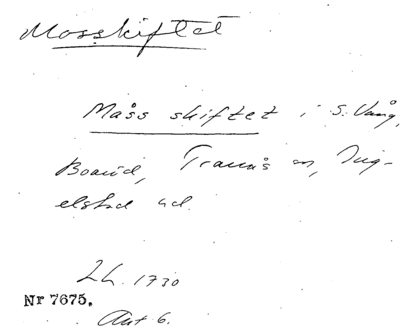 Mosskiftet
Måss skiftet i S. Vång,
Boarid, Tranås sn, Ing-
elstad hd.
LL. 1730
Nr 7675.
Akt 6.